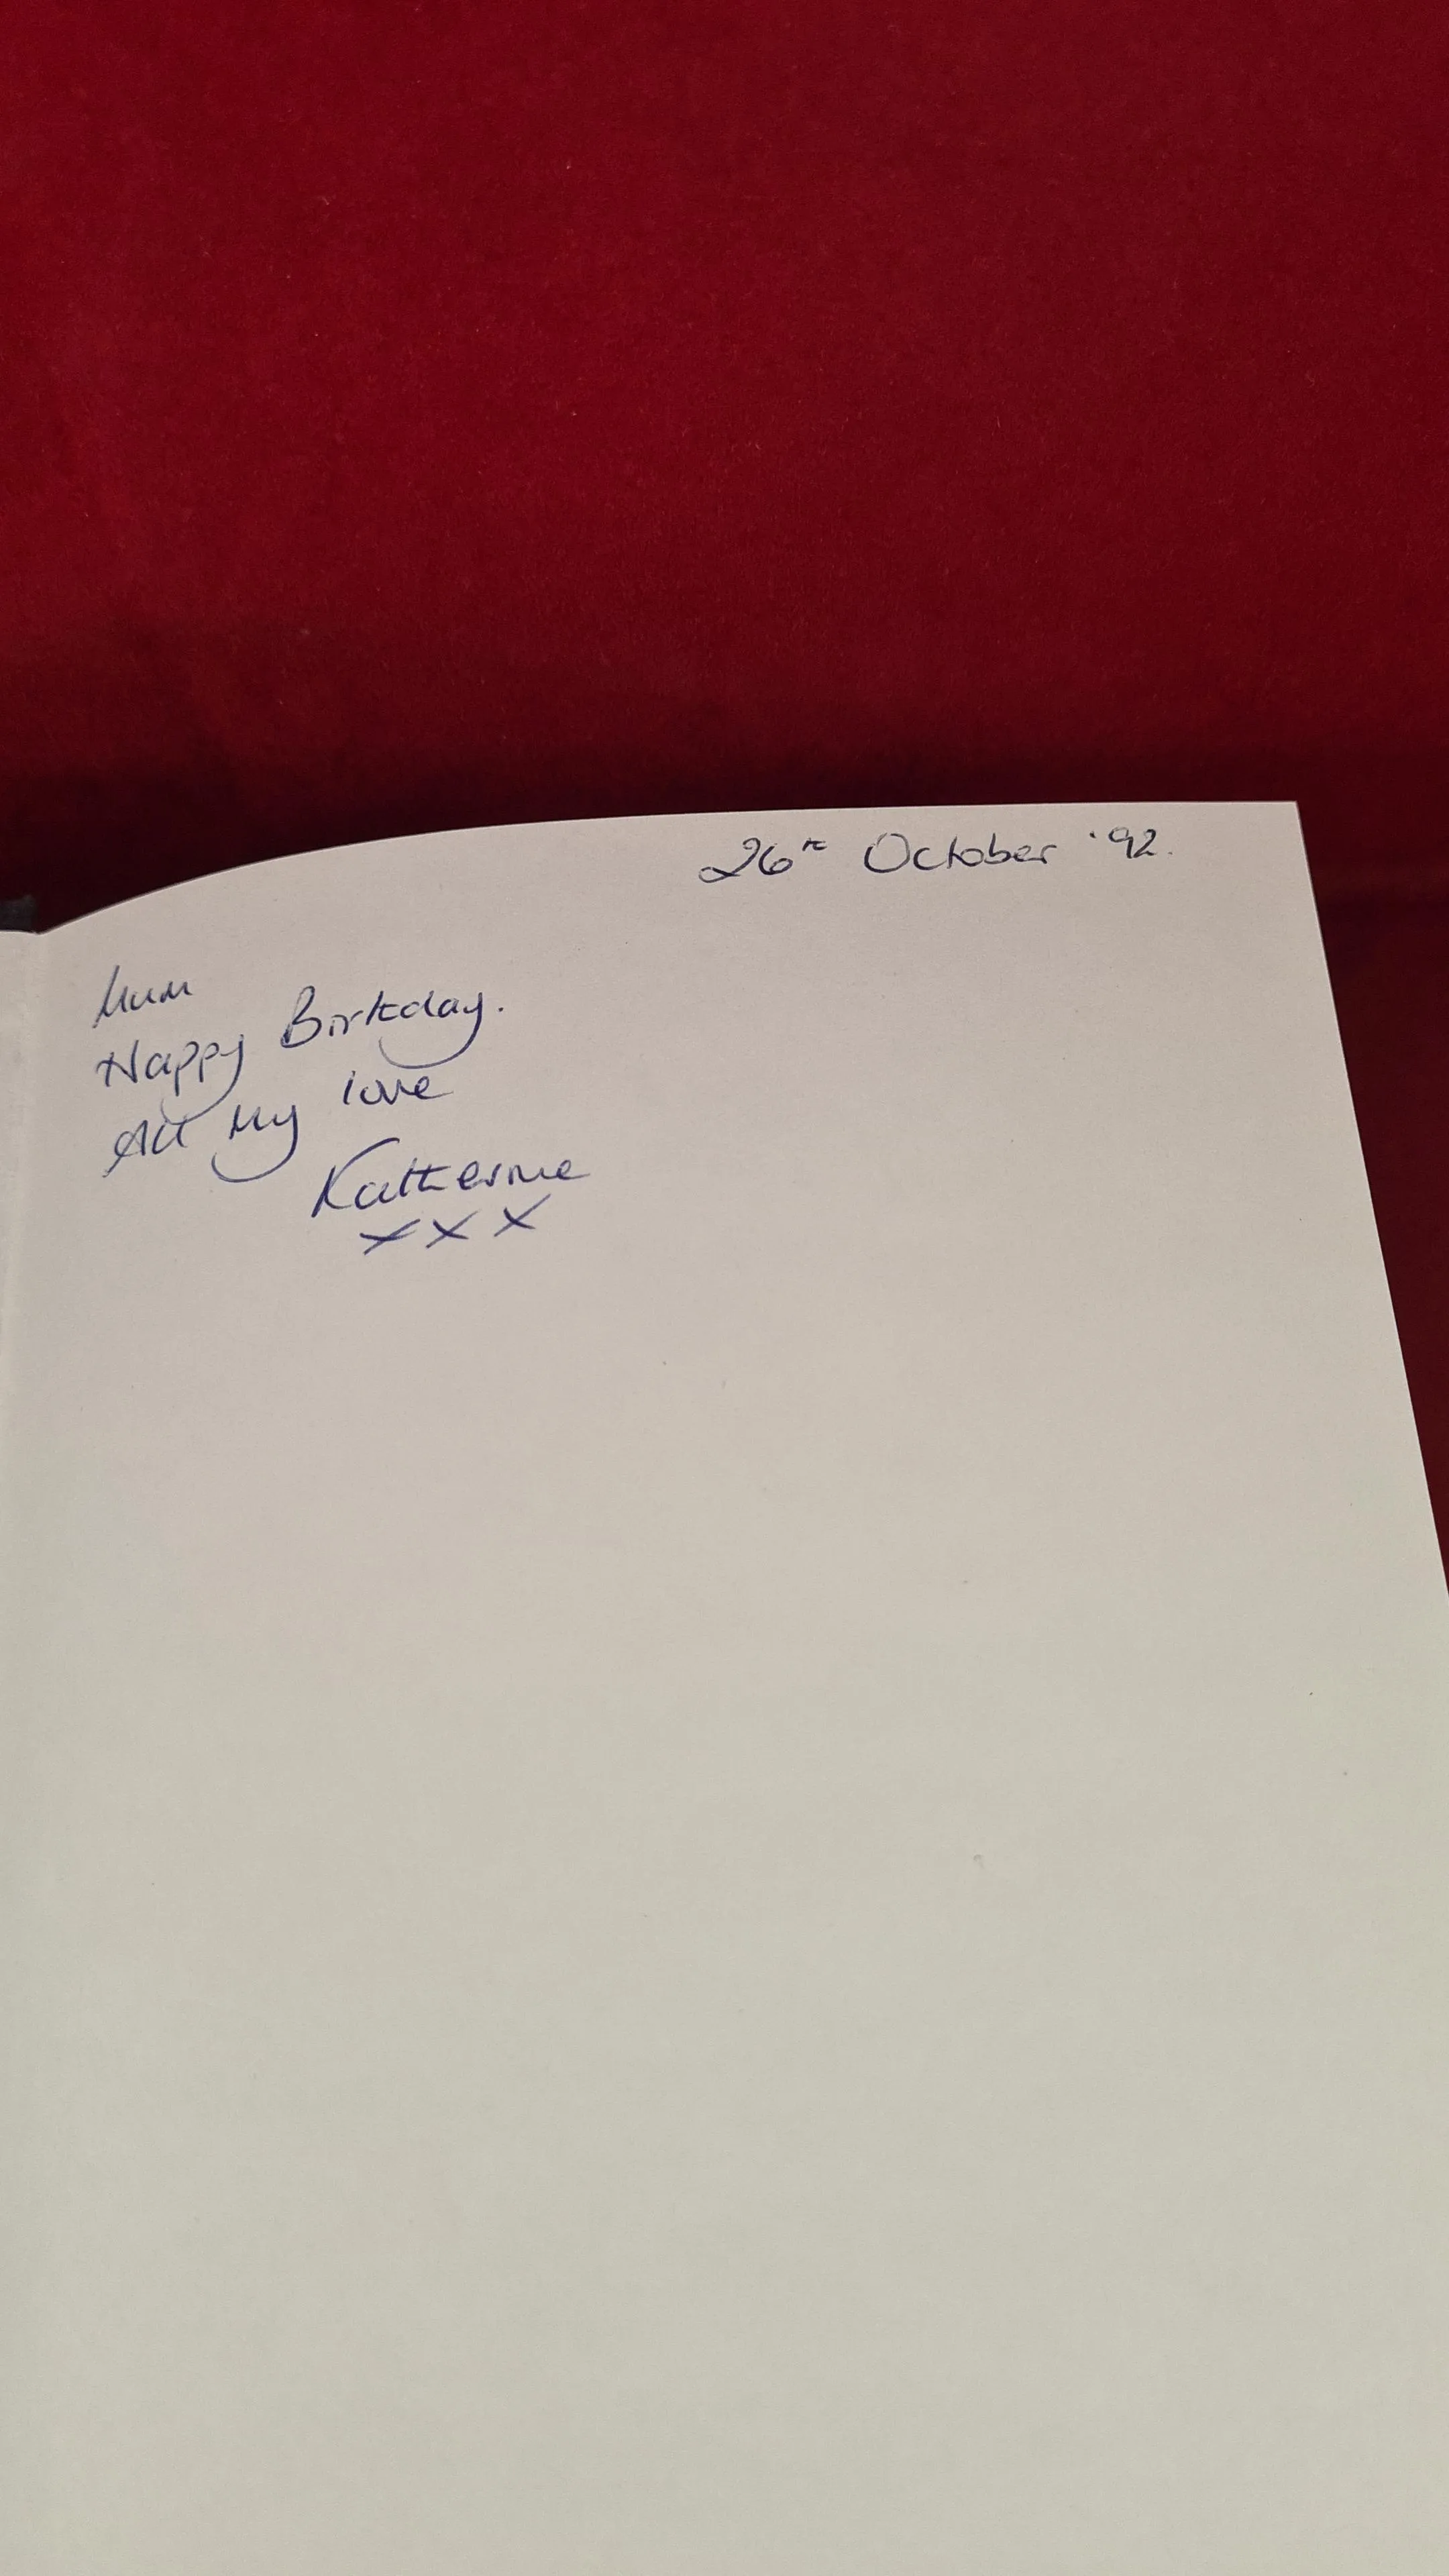 26th October '92.
Mum
Happy Birthday.
All my love
Katherine
x x x